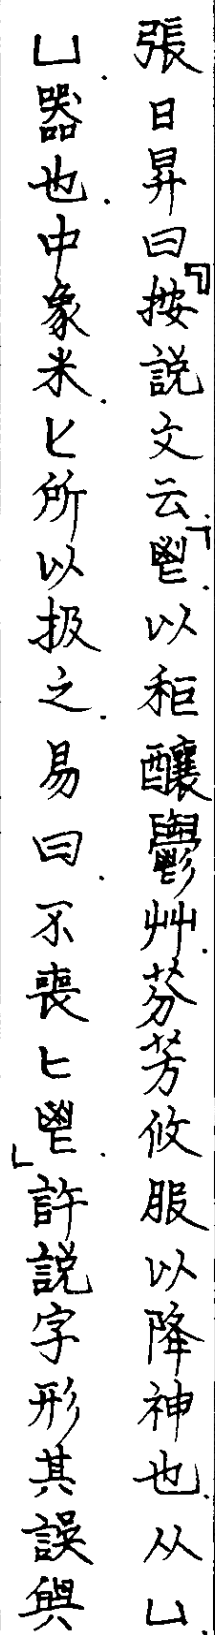 張日昇曰『按說文云「鬯．以秬釀鬱艸．芬芳攸服以降神也．从凵．
凵器也．中象米．匕所以扱之．易曰．不喪匕鬯．」許說字形其誤與